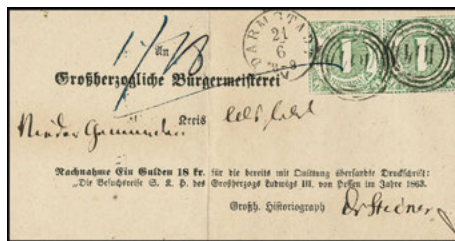 DARMSTADT
21
6
1 1
1/18
An
Großherzogliche Bürgermeisterei
Kreis Alsfeld
Nieder Gemünden
Nachnahme Ein Gulden 18 kr. für die bereits mit Quittung übersandte Druckschrift:
„Die Besuchsreise S. K. H. des Großherzogs Ludwigs III. von Hessen im Jahre 1863.
Großh. Historiograph Dr Steiner